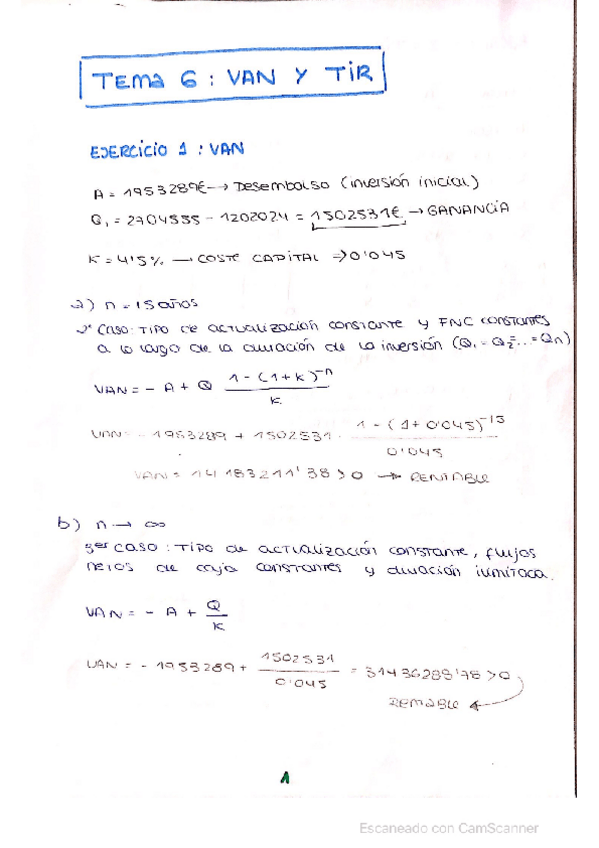 TEMA 6 : VAN Y TIR
EJERCICIO 1 : VAN
A = 1953289€ → Desembolso (inversión inicial)
Q₁ = 2704555 - 1202024 = 1502531€ → GANANCIA
K = 4'5% → COSTE CAPITAL ⇒ 0'045
a) n = 15 años
2º CASO: TIPO de actualización constante y FNC constantes
a lo largo de la duración de la inversión (Q₁ = Q₂ = ... = Qn)
VAN = - A + Q (1 - (1+K)⁻ⁿ) / K
VAN = - 1953289 + 1502531 · (1 - (1 + 0'045)⁻¹⁵) / 0'045
VAN = 14183211'38 > 0 → RENTABLE
b) n → ∞
3er CASO : TIPO de actualización constante, flujos
netos de caja constantes y duración ilimitada.
VAN = - A + Q / K
VAN = - 1953289 + 1502531 / 0'045 = 31436288'78 > 0
RENTABLE
1
Escaneado con CamScanner